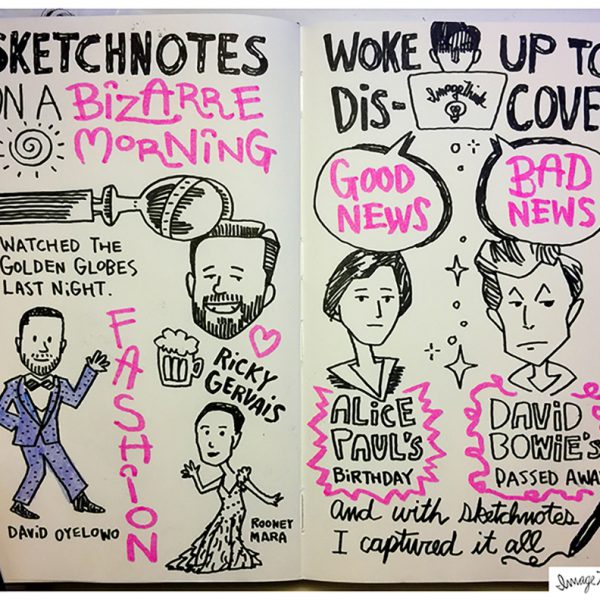 SKETCHNOTES
ON A BIZARRE
MORNING
WATCHED THE
GOLDEN GLOBES
LAST NIGHT.
FASHION
RICKY
GERVAIS
DAVID OYELOWO
ROONEY
MARA
WOKE UP TO
DIS-COVE
ImageThink
GOOD
NEWS
BAD
NEWS
ALICE
PAUL'S
BIRTHDAY
DAVID
BOWIE'S
PASSED AWA
And with sketchnotes
I captured it all